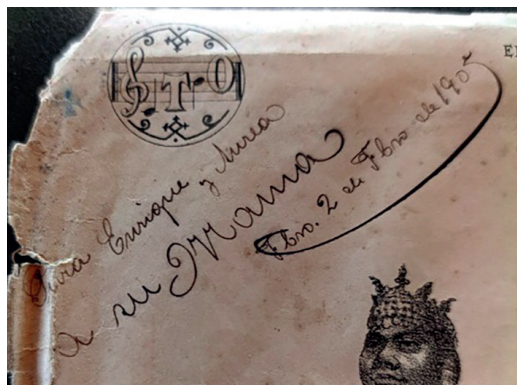 T O
E
Para Enrique y Nurea
a su Mama
Fbro. 2 de Fbro de 190